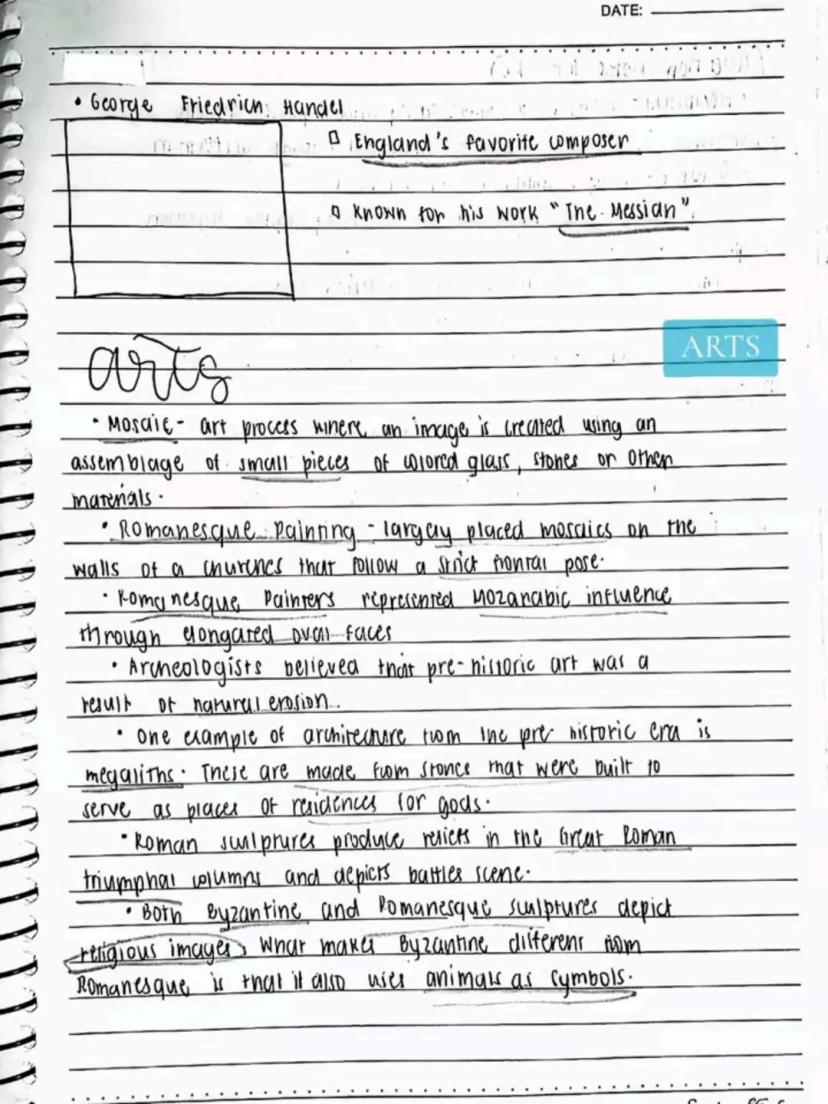 DATE:
• George Friedrich Handel
England's favorite composer
Known for his work "The Messiah"
arts
ARTS
• Mosaic - art process where an image is created using an
assemblage of small pieces of colored glass, stones or other
materials.
• Romanesque Painting - largely placed mosaics on the
walls of a churches that follow a strict frontal pose.
• Romanesque Painters represented Mozarabic influence
through elongated oval faces
• Archeologists believed that pre-historic art was a
result of natural erosion.
• One example of architecture from the pre historic era is
megaliths. These are made from stones that were built to
serve as places of residences for gods.
• Roman sculptures produce reliefs in the Great Roman
triumphal columns and depicts battles scene.
• Both Byzantine and Romanesque sculptures depict
religious images, what makes Byzantine different from
Romanesque is that it also uses animals as symbols.